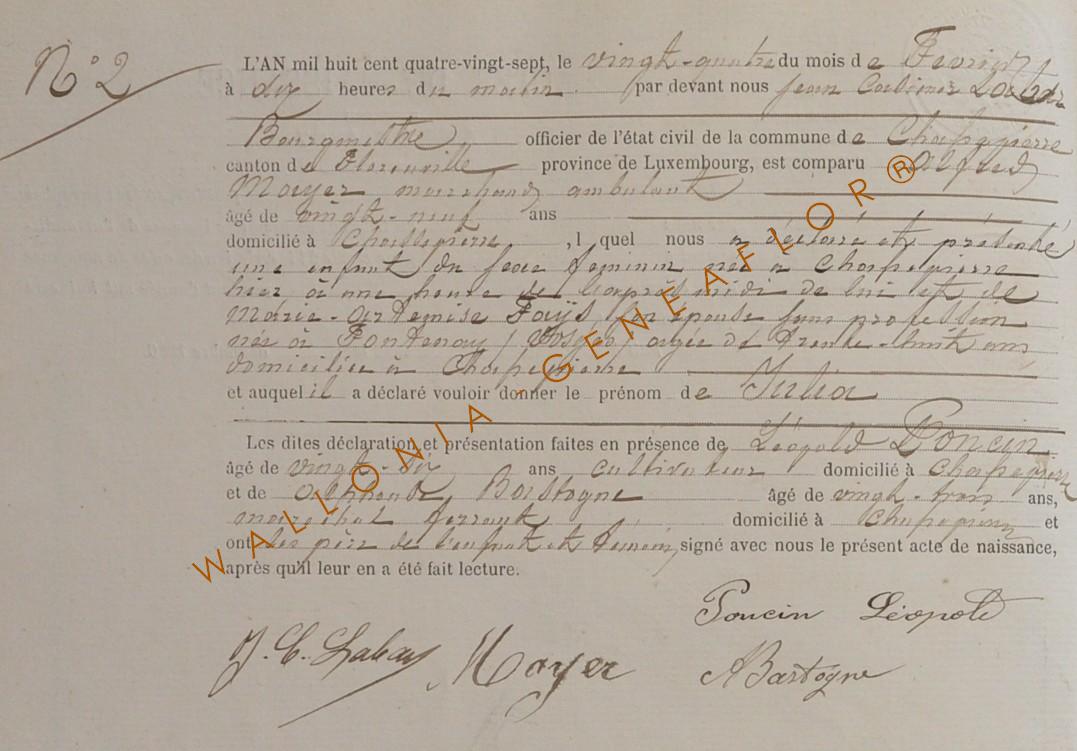 N° 2
L'AN mil huit cent quatre-vingt-sept, le vingt-quatre du mois de Fevrier
à dix heures du matin par devant nous jean
Bourgmestre officier de l'état civil de la commune de Chassepierre
canton de Florenville province de Luxembourg, est comparu Alfred
Mayer marchand ambulant
âgé de vingt-neuf ans
domicilié à Chassepierre, lequel nous a déclaré et présenté
une enfant du sexe féminin née à Chassepierre
hier à une heure de l'après midi de lui et de
Marie-Artemise Fays son épouse sans profession
née à Fontenoy (Vosges) agée de trente-huit ans
domiciliée à Chassepierre
et auquel il a déclaré vouloir donner le prénom de Julia
Les dites déclaration et présentation faites en présence de Léopold Poncin
âgé de vingt-six ans cultivateur domicilié à Chassepierre
et de Bastogne âgé de vingt-trois ans,
maréchal ferrant domicilié à Chassepierre et
ont les père de l'enfant et témoins signé avec nous le présent acte de naissance,
après qu'il leur en a été fait lecture.
Poncin Léopold
J. C. Mayer ABastogne
WALLONIA - GENEAFLOR®